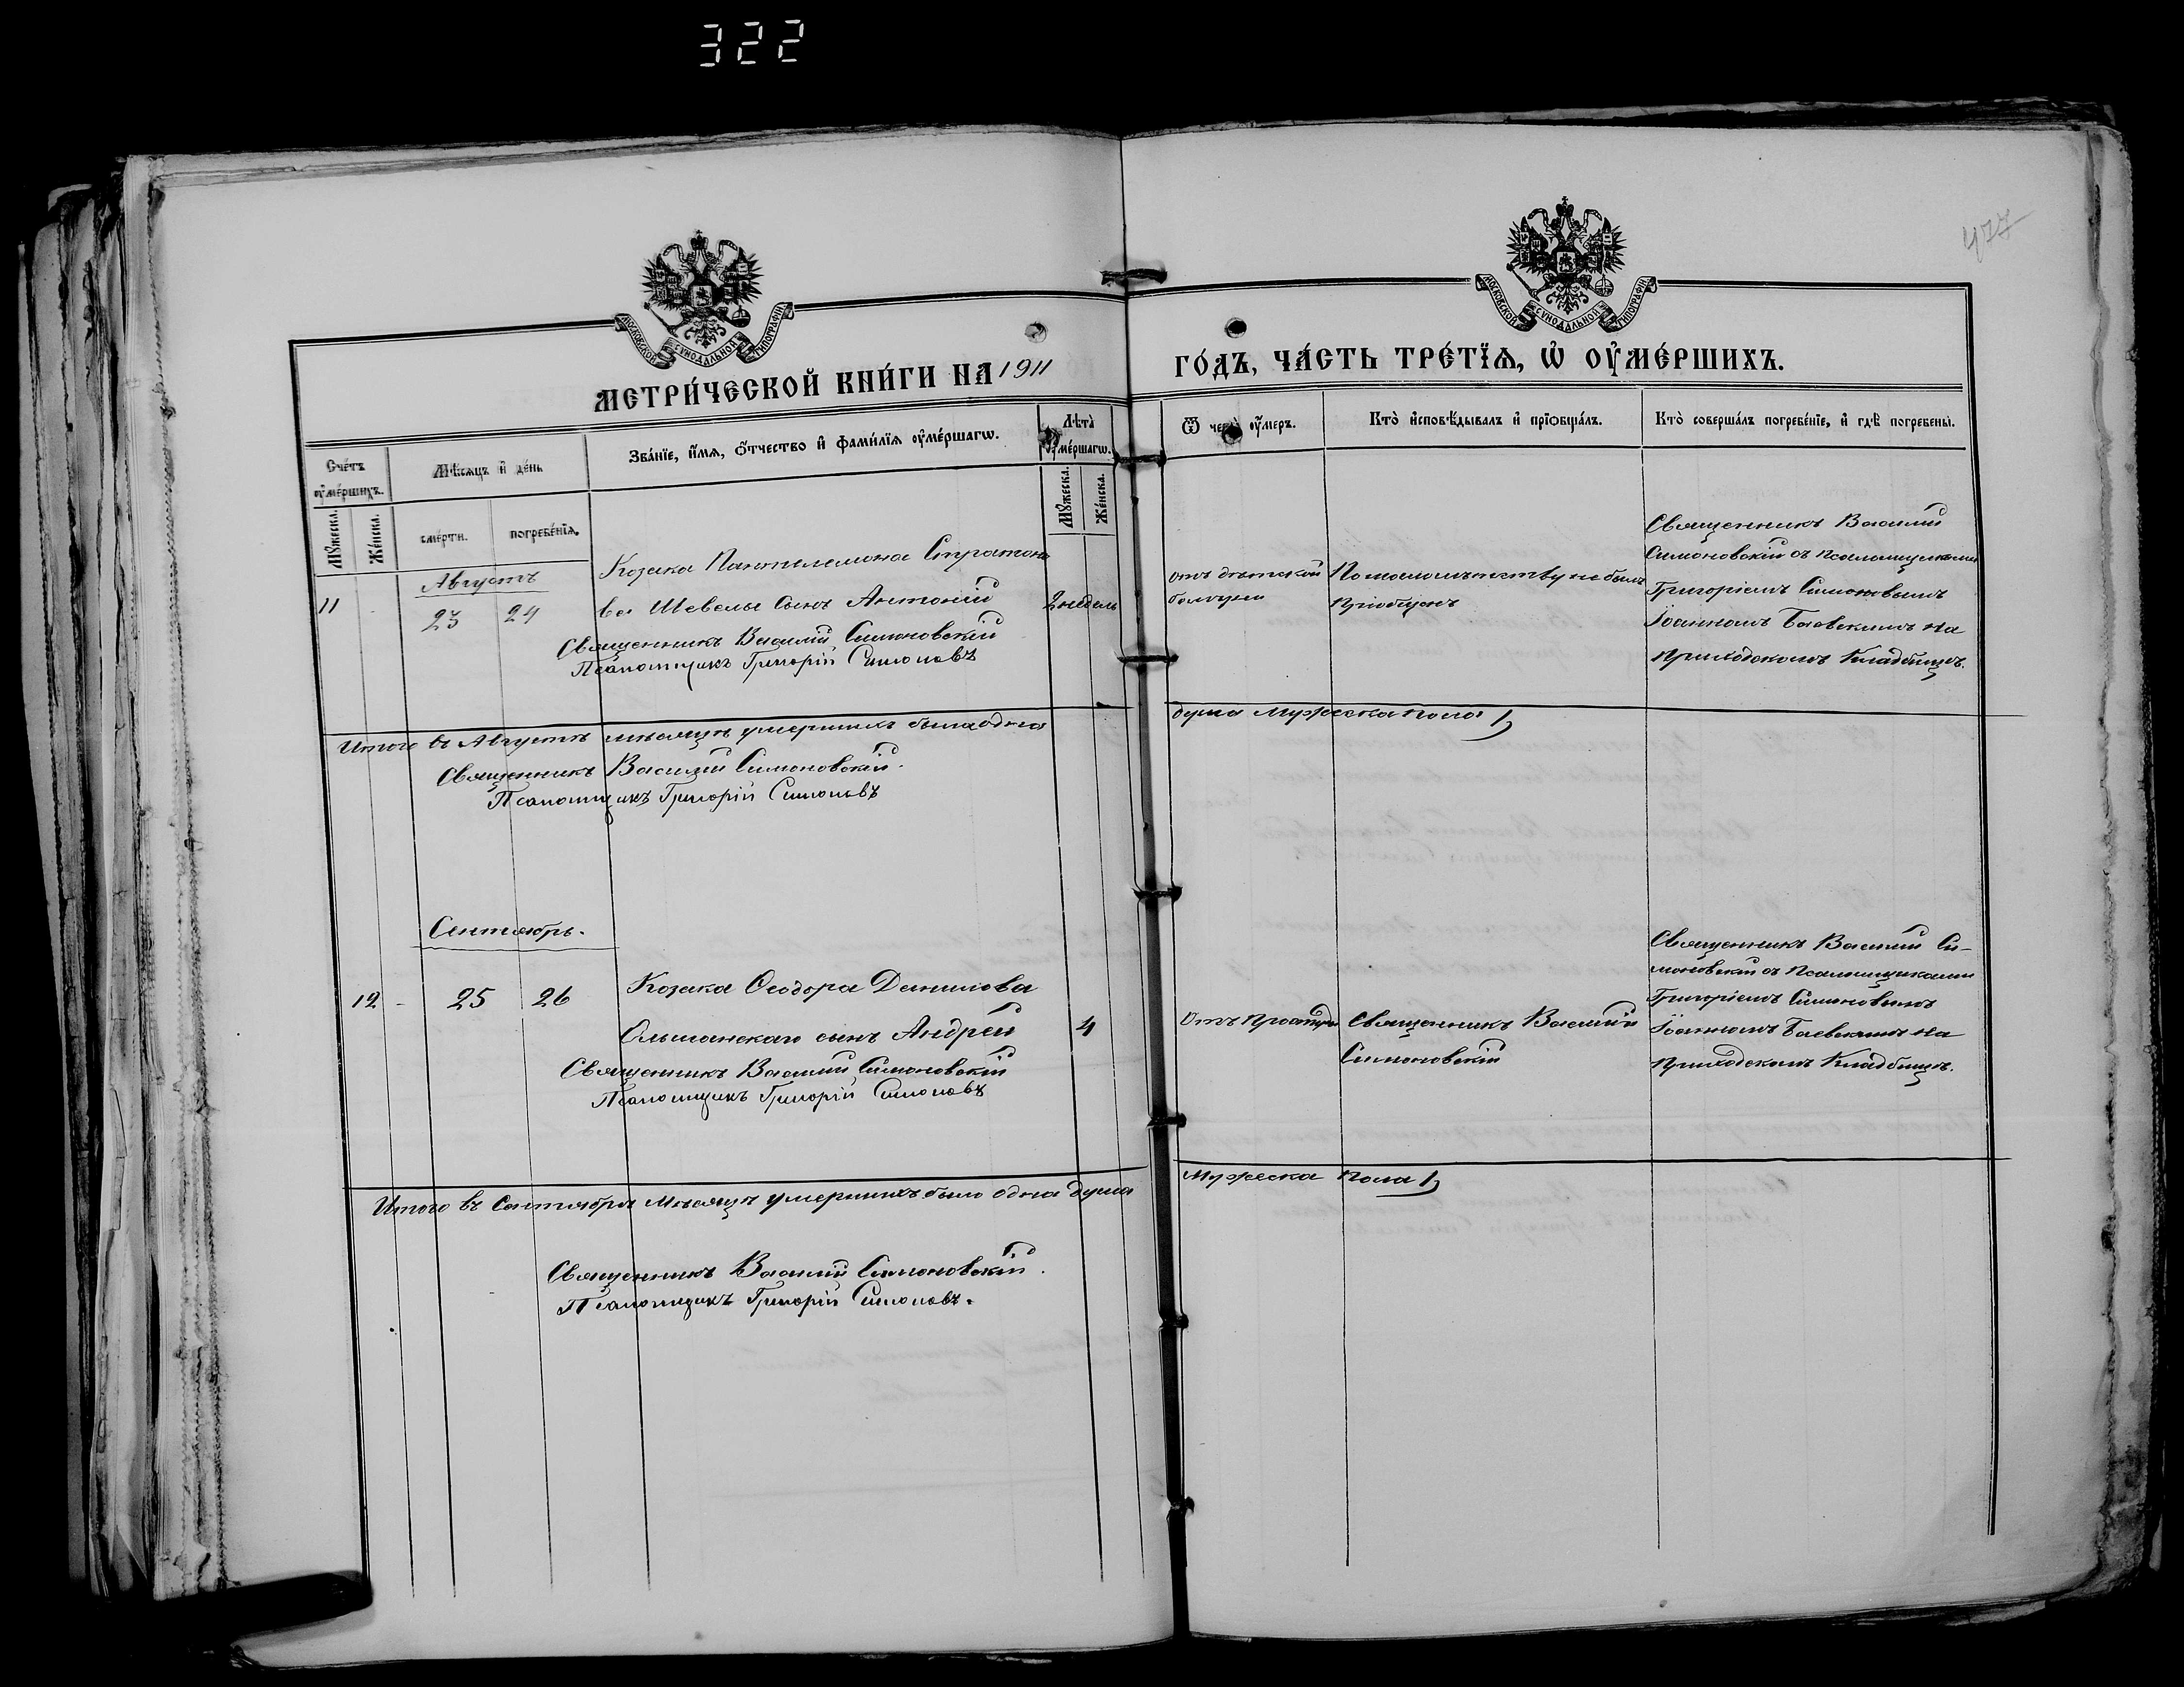 322
477
МОСКОВСКОЙ СУНОДАЛЬНОЙ ТИПОГРАФІИ
МОСКОВСКОЙ СУНОДАЛЬНОЙ ТИПОГРАФІИ
МЕТРИ́ЧЕСКОЙ КНИ́ГИ НА 1911
ГО́ДЪ, ЧА́СТЬ ТРЕ́ТЇѦ, Ѡ҆ ОУ҆МЕ́РШИХЪ.
Сче́тъ оу҆ме́ршихъ.
Мꙋ́жеска.
Же́нска.
Мѣ́сѧцъ и҆ де́нь
сме́рти.
погребе́нїѧ.
Зва́нїе, и҆́мѧ, ѻ҆́тчество и҆ фами́лїѧ оу҆ме́ршагѡ.
Лѣта̀ оу҆ме́ршагѡ.
Мꙋ́жеска.
Же́нска.
Ѿ чегѡ̀ оу҆́меръ.
Кто̀ и҆сповѣ́дывалъ и҆ прїѡбща́лъ.
Кто̀ соверша́лъ погребе́нїе, и҆ гдѣ̀ погребены̀.
Августъ
11
23
24
Козака Пантелеимона Стратоно
ва Шевелы сынъ Антоній
2 недель
Священникъ Василій Симоновскій
Псаломщикъ Григорій Симоновъ
отъ дѣтской
болѣзни
По малолѣтству не былъ
пріобщенъ
Священникъ Василій
Симоновскій съ псаломщиками
Григоріемъ Симоновымъ
Іоанномъ Баевскимъ на
приходскомъ кладбищѣ.
Итого въ Августѣ мѣсяцѣ умершихъ была одна
душа мужеска пола 1,
Священникъ Василій Симоновскій.
Псаломщикъ Григорій Симоновъ
Сентябрь.
12
-
25
26
Козака Ѳеодора Данилова
Ольшанскаго сынъ Андрей
4
Священникъ Василій Симоновскій
Псаломщикъ Григорій Симоновъ
Отъ простуды
Священникъ Василій
Симоновскій
Священникъ Василій Си-
моновскій съ псаломщиками
Григоріемъ Симоновымъ
Іоанномъ Баевскимъ на
приходскомъ кладбищѣ.
Итого въ Сентябрѣ мѣсяцѣ умершихъ было одна душа
мужеска пола 1,
Священникъ Василій Симоновскій.
Псаломщикъ Григорій Симоновъ.